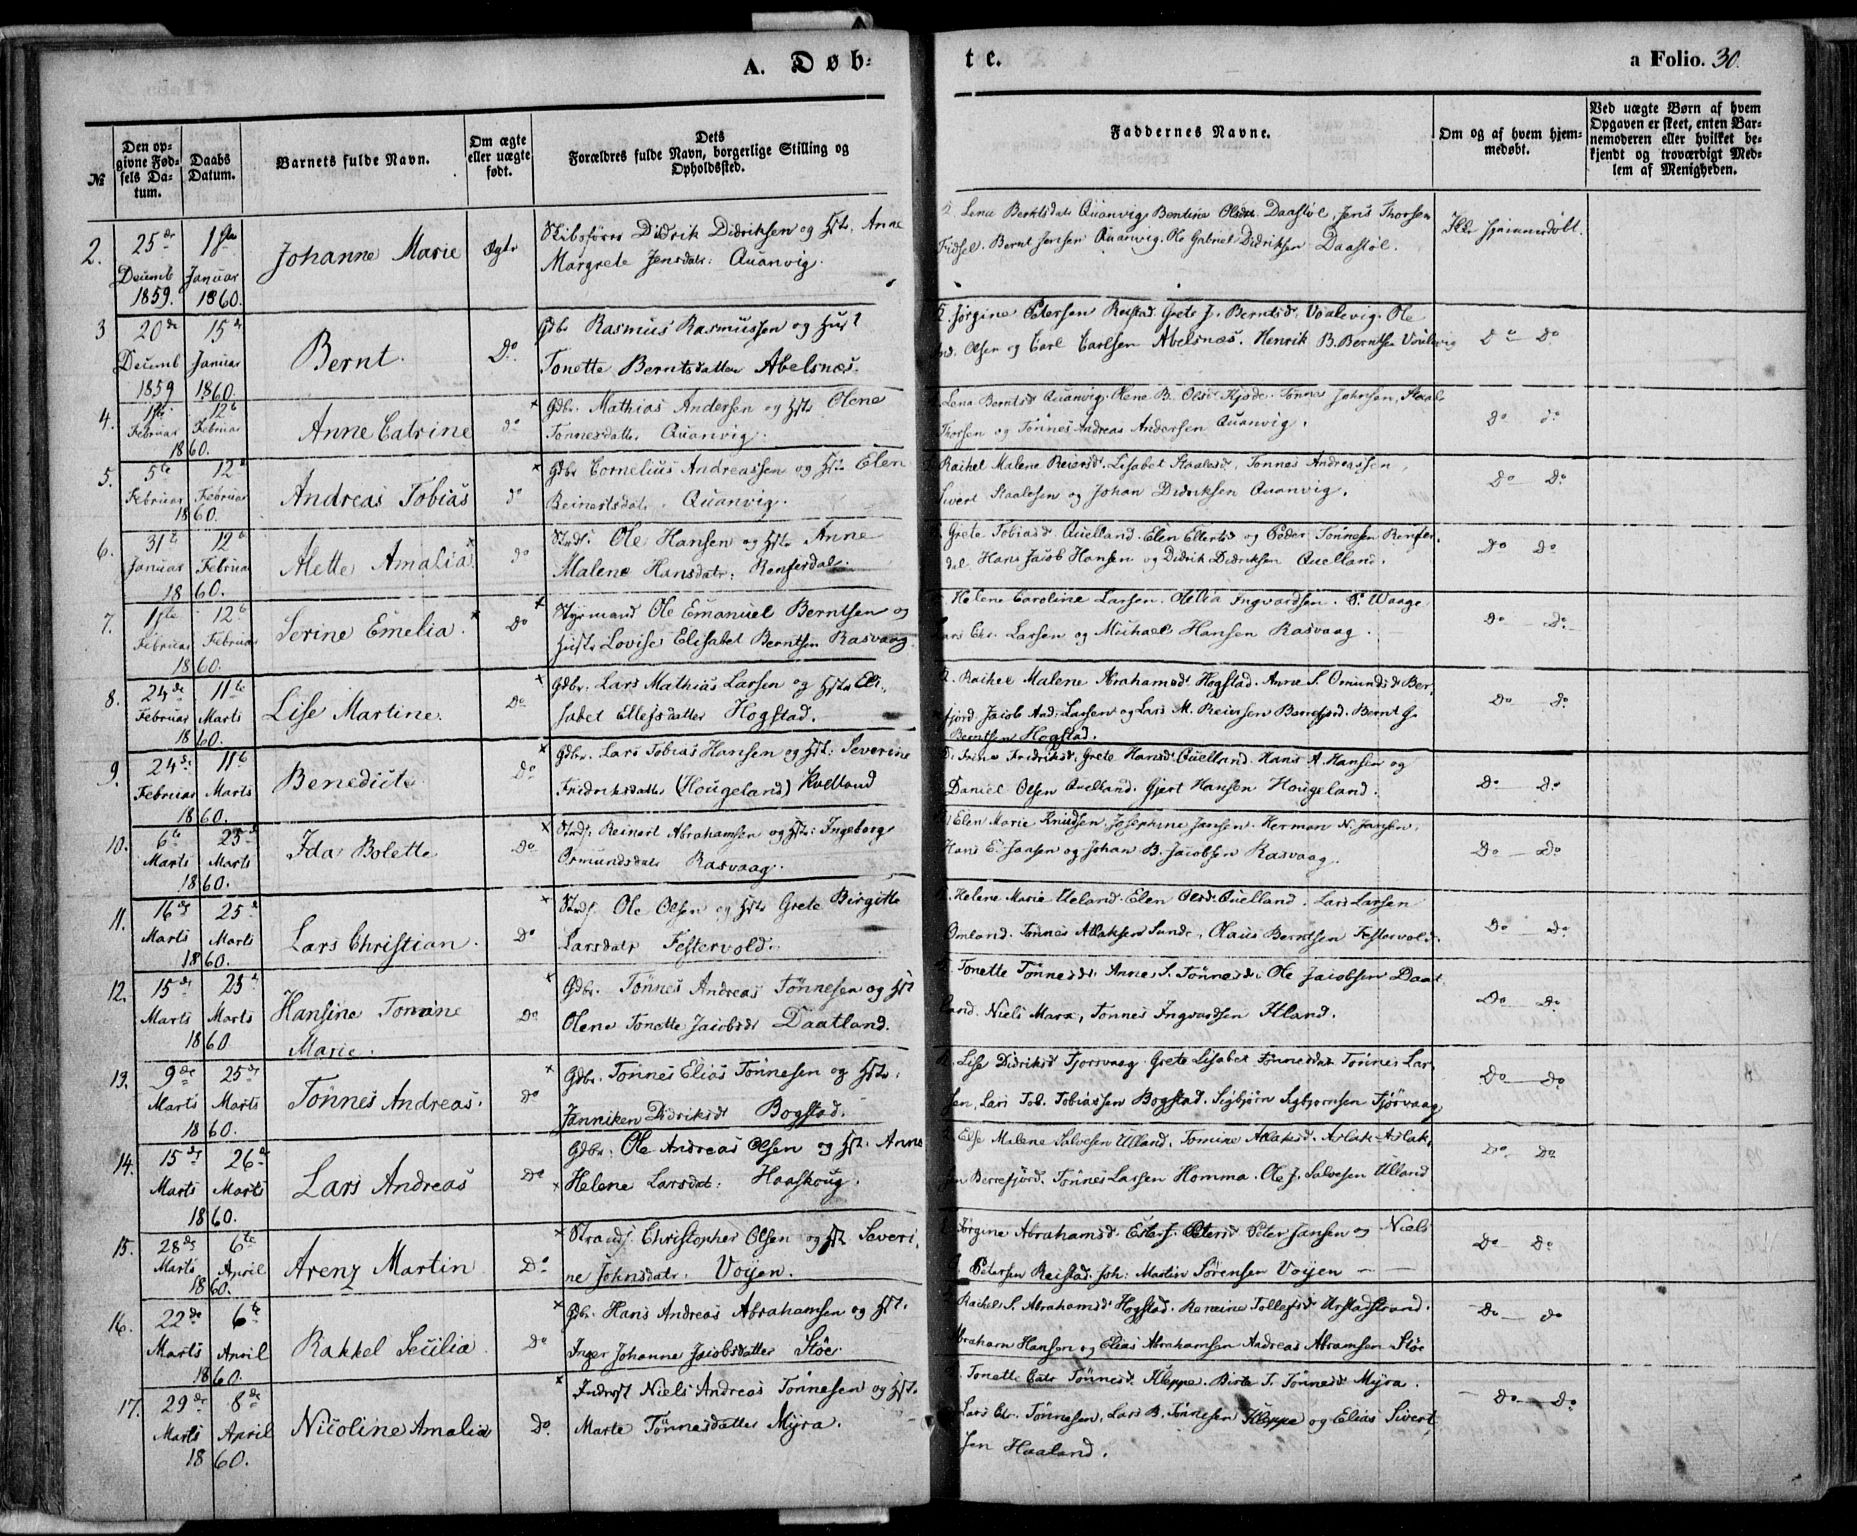 A. Døb-
te.
a Folio. 30.
№
Den op-
givne Fød-
sels Da-
tum.
Daabs
Datum.
Barnets fulde Navn.
Om ægte
eller uægte
født.
Dets
Forældres fulde Navn, borgerlige Stilling og
Opholdssted.
Faddernes Navne.
Om og af hvem hjem-
medøbt.
Ved uægte Børn af hvem
Opgaven er skeet, enten Bar-
nemoderen eller hvilket be-
kjendt og troværdigt Med-
lem af Menigheden.
2.
25de
Decemb
1859.
1ste
Januar
1860.
Johanne Marie
Ægte
Skibsfører Didrik Didriksen og Hst. Anne
Margrete Jensdatr: Quanvig.
Lena Berntsdatr Quanvig, Bentina Olsdtr Daastøl, Jens Thorsen
Fidsel. Bernt Jensen Quanvig. Ole Gabriel Didriksen Daastøl.
Ikke hjemmedøbt.
3
20de
Decemb
1859
15de
Januar
1860.
Bernt.
Do.
Gdbr Rasmus Rasmussen og Hust
Tonette Berntsdatter Abelsnæs.
Jørgine Petersen Reistad. Grete J. Berntsd. Vaalevig. Ole
And. Olsen og Carl Carlsen Abelsnæs. Henrik B. Berntsen Vaalevig
Do Do
4.
1ste
Februar
12te
Februar
1860.
Anne Catrine
do
Gdbr. Mathias Andersen og Hst. Olene
Tønnesdattr. Quanvig.
Lena Berntsd Quanvig. Olene B. Olsd. Tønnes Johnsen, Staale
Thorsen og Tønnes Andreas Andersen Quanvig.
Do do
5.
5te
Februar
12te
Februar
1860.
Andreas Tobias
do
Gdbr Cornelius Andreassen og Hst. Elen
Reinertsdatr. Quanvig.
Raihel Malene Reiersd. Lisabet Staalesd. Tønnes Andreassen,
Sivert Staalesen og Johan Didriksen Quanvig.
Do Do
6.
31te
Januar
12te
Februar
1860.
Mette Amalia
do
Strds: Ole Hansen og Hst. Anne
Malene Hansdatr: Renfersdal.
Grete Tobiasd Quelland. Elen Ellertsd og Peder Tønnesen Renfers-
dal. Hans Jacob Hansen og Didrik Didriksen Quelland.
Do Do
7.
1ste
Februar
12te
Februar
1860.
Serine Emelia.
Do
Styrmand Ole Emanuel Berntsen og
Hust. Lovise Elisabet Berntsen Rasvaag
Helene Caroline Larsen. Ingvardsen. P. Waage
Lars Chr. Larsen og Michael Hansen Rasvaag.
Do Do
8.
24de
Februar
11te
Marts
1860.
Lise Martine.
Do
Gdbr. Lars Mathias Larsen og Hst. Eli-
sabet Ellefsdatter Hogstad.
Raihel Malene Abrahamsd. Hogstad. Anne S. Omundsd. Ber-
refjord. Jacob And. Larsen og Lars M. Reiersen Berrefjord. Bernt G.
Berntsen Hogstad.
Do do
9.
24de
Februar
11te
Marts
1860.
Benedicte
Do
Gdbr. Lars Tobias Hansen og Hst. Severine
Fredriksdatter (Hougeland) Kvelland
Trine Fredriksd. Grete Hansd. Quelland. Hans A. Hansen og
Daniel Olsen Quelland. Gjert Hansen Hougeland.
Do Do
10.
6te
Marts
25de
Marts
1860.
Ida Bolette
Do
Strds: Reinert Abrahamsen og Hst: Ingeborg
Omundsdatr Rasvaag.
Elen Marie Knudsen, Josephine Jansen. Herman N. Jansen.
Hans E. Jansen og Johan B. Jacobsen Rasvaag.
Do Do
11.
16de
Marts
25de
Marts
1860.
Lars Christian.
Do
Strds. Ole Olsen og Hst. Grete Birgitte
Larsdatr Festervold.
Helene Marie Ueland. Elen Olsd. Quelland. Lars Larsen
Omland. Tønnes Atlaksen Sunde, Olaus Berntsen Festervold.
Do Do
12.
15de
Marts
25de
Marts
1860
Hansine Tomine
Marie.
Do
Gdbr. Tønnes Andreas Tønnesen og Hst
Olene Tonette Jacobsdt Daatland.
Tonette Tønnesdt. Anne S. Tønnesd. Ole Jacobsen Daat-
land. Niels Marx, Tønnes Ingvardsen Htland.
Do Do
13.
9de
Marts
25de
Marts
1860.
Tønnes Andreas.
Do
Gdbr. Tønnes Elias Tønnesen og Hst.
Janniken Didriksdt Bogstad.
Lise Didriksd Fjorvaag. Grete Lisabet Tønnesdat. Tønnes Lar-
sen, Lars Tob. Tobiassen Bogstad. Sigbjørn Sigbjørnsen Fjørvaag
Do Do
14.
15de
Marts
26de
Marts
1860.
Lars Andreas
Do
Gdbr. Ole Andreas Olsen og Hst. Anne
Helene Larsdat: Haaskoug.
Else Malene Salvesen Ulland. Tomine Atlaksd. Aslak Aslak-
sen Berrefjord. Tønnes Larsen Homma. Ole J. Salvesen Ulland
Do Do
15.
28de
Marts
6te
April
1860.
Arenz Martin
Do
Strands. Christopher Olsen og Hst Severi-
ne Johnsdatr. Voijen.
Jørgine Abrahamsd. Petersd Peter Jansen og Niels
Petersen Reistad. Joh: Martin Sørensen Voijen
Do Do
16.
22de
Marts
6te
April
1860.
Rakkel Secilia
Do
Gdbr. Hans Andreas Abrahamsen og Hst.
Inger Johanne Jacobsdatter Støe.
Rachel S. Abrahamsd. Hogstad. Tollefsd Urstadstrand.
Abraham Hansen og Elias Abrahamsen Andreas Abramsen Støe
Do do
17.
29de
Marts
8de
April
1860.
Nicoline Amalia
Do.
Inderst Niels Andreas Tønnesen og Hst.
Marte Tønnesdatter Myra.
Tonette Catr Tønnesd. Kleppe. Birte T. Tønnesd Myra.
Lars Chr. Tønnesen, Lars B. Tønnesen Kleppe og Elias Sivert-
sen Haaland.
Do Do